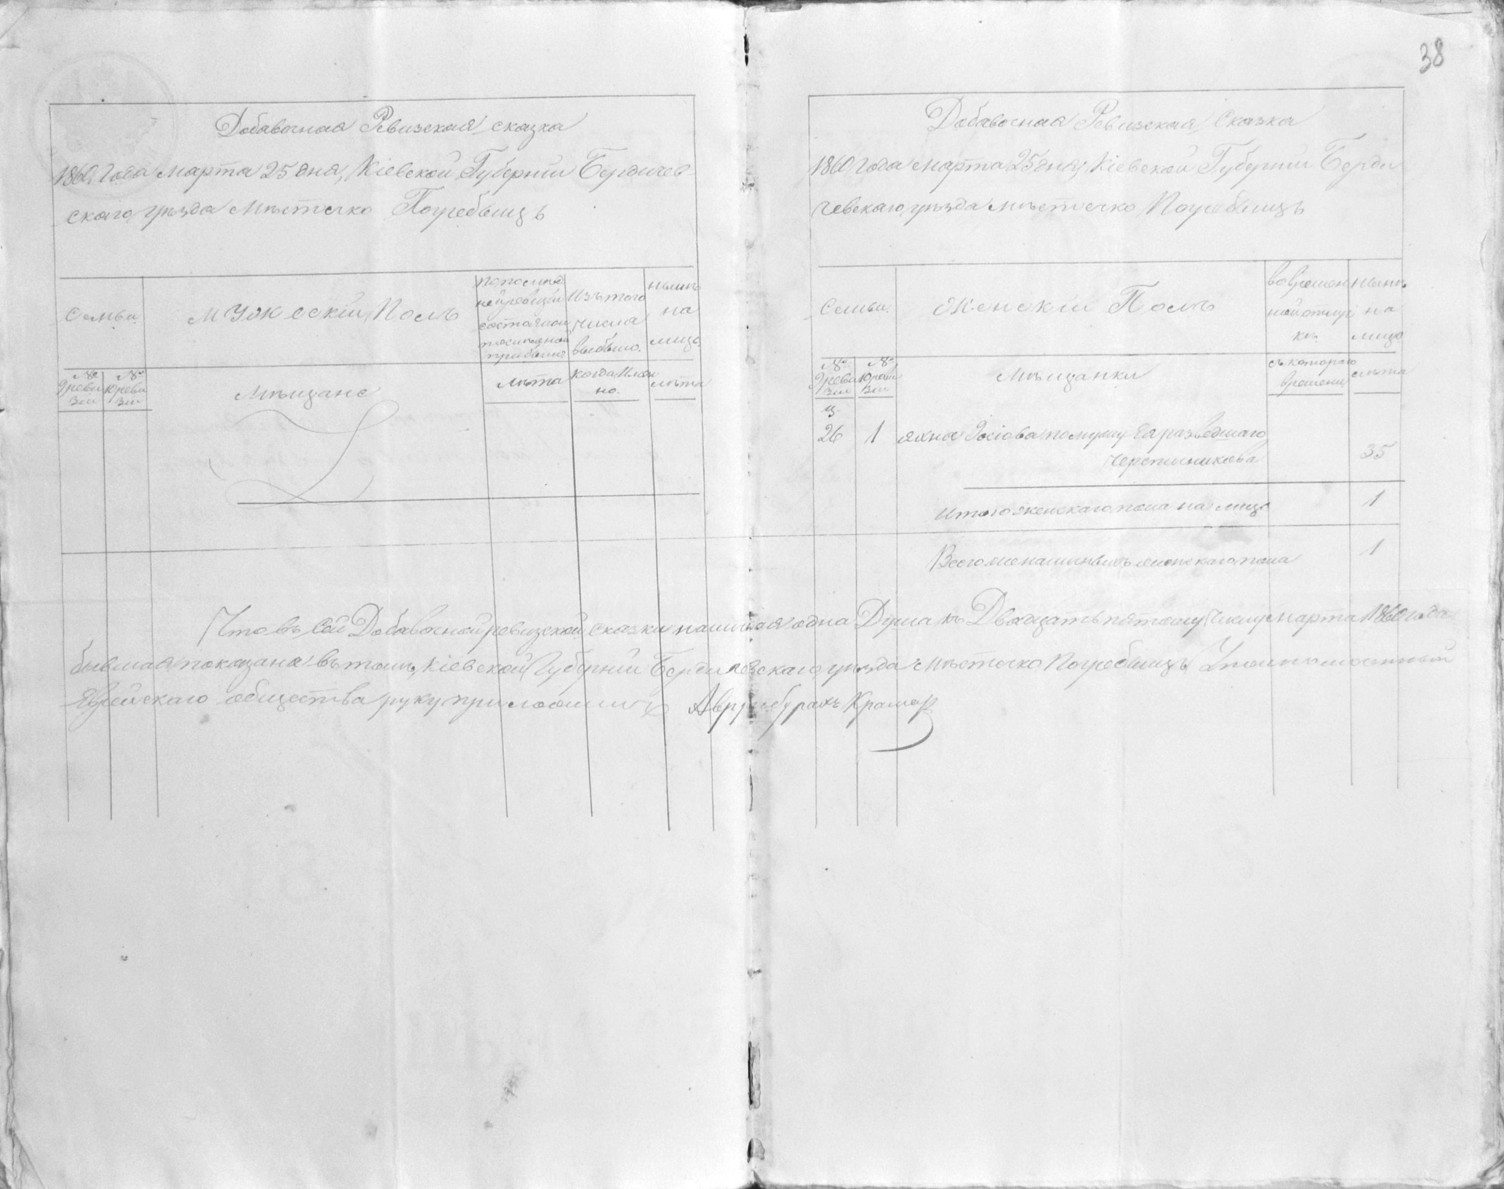 38
Добавочная Ревизская сказка
1860 года марта 25 дня, Кіевской Губерніи Бердичев
скаго уѣзда мѣстечко Погребищъ
Семьи
Мужескій Полъ
По послѣд
ней ревизіи
состояло
и послѣ
прибыло
Изъ того
числа
выбыло.
Нынѣ
на
лицо
№
9 реви
зіи
№
10 реви
зіи
Мѣщане
лѣта
когда имян
но.
лѣта
Добавочная Ревизская Сказка
1860 года марта 25 дня, Кіевской Губерніи Берди
чевскаго уѣзда мѣстечко Погребищъ
Семьи
Женскій Полъ
во времен
ной отлуч
кѣ.
Нынѣ
на
лицо
№
9 реви
зіи
№
10 реви
зіи
Мѣщанки
съ котораго
времени
лѣта
26 1 Яхна по мужу
Черепишникова 35
Итого женскаго пола на лицо 1
Всего женскаго пола 1
Что въ сей Добавочной ревизской сказки одна Душа къ Двадцать пятому числу марта 1860 года
показана въ томъ, Кіевской Губерніи Бердичевскаго уѣзда мѣстечко Погребищъ Уполномоченный
Еврейскаго общества руку приложилъ Крамар